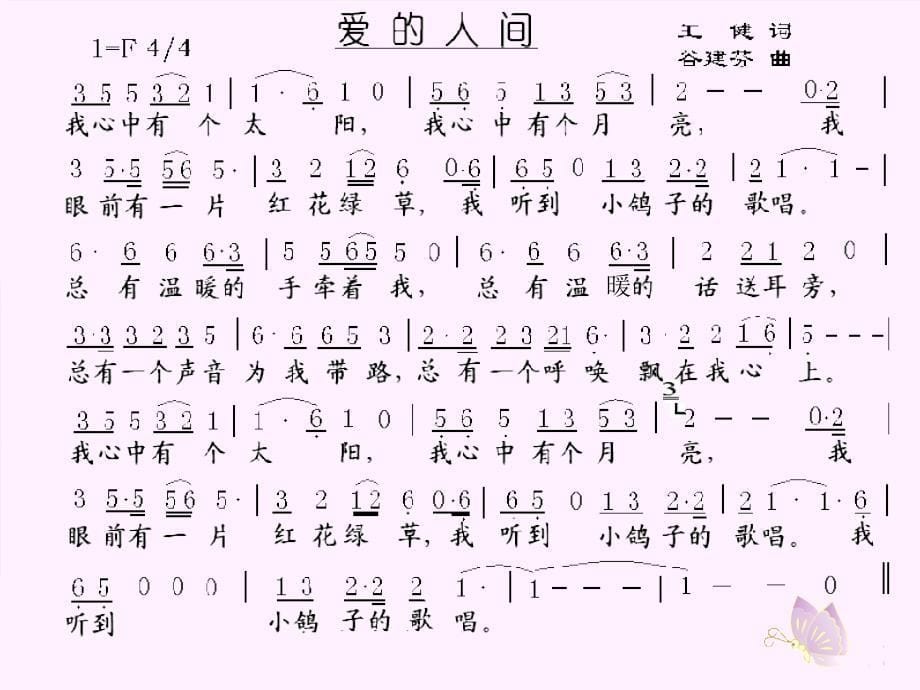 爱的人间
王 健 词
1=F 4/4
谷建芬 曲
3 5 5 3 2 1 | 1 · 6 1 0 | 5 6 5 1 3 5 3 | 2 — — 0·2 |
我心中有 个 太 阳， 我心 中 有个 月 亮， 我
3 5·5 5 6 5· | 3 2 1 2 6 0·6 | 6 5 0 1 3 2·2 | 2 1 · 1 — |
眼 前有 一 片 红 花 绿 草，我 听到 小鸽 子的 歌唱。
6· 6 6 6·3 | 5 5 5 6 5 5 0 | 6· 6 6 6·3 | 2 2 2 1 2 0 |
总 有 温 暖的 手 牵着 我， 总 有 温 暖的 话 送耳 旁，
3·3 3 2 3 5 | 6·6 6 6 5 3 | 2·2 2 3 2 1 6· | 3·2 2 1 6 | 5 - - - |
总有一个声音 为我 带路，总有 一个呼 唤 飘在我心 上。
3 5 5 3 2 1 | 1· 6 1 0 | 5 6 5 1 3 5 3 | 3 2 — — 0·2 |
我心中有 个 太 阳， 我心 中 有个 月 亮， 我
3 5·5 5 6 5· | 3 2 1 2 6 0·6 | 6 5 0 1 3 2·2 | 2 1 · 1·6 |
眼 前有 一 片 红 花 绿 草，我 听到 小鸽 子的 歌唱。 我
6 5 0 0 0 | 1 3 2·2 2 1 · | 1 — — — | 1 — — 0 ‖
听到 小鸽 子的 歌 唱。